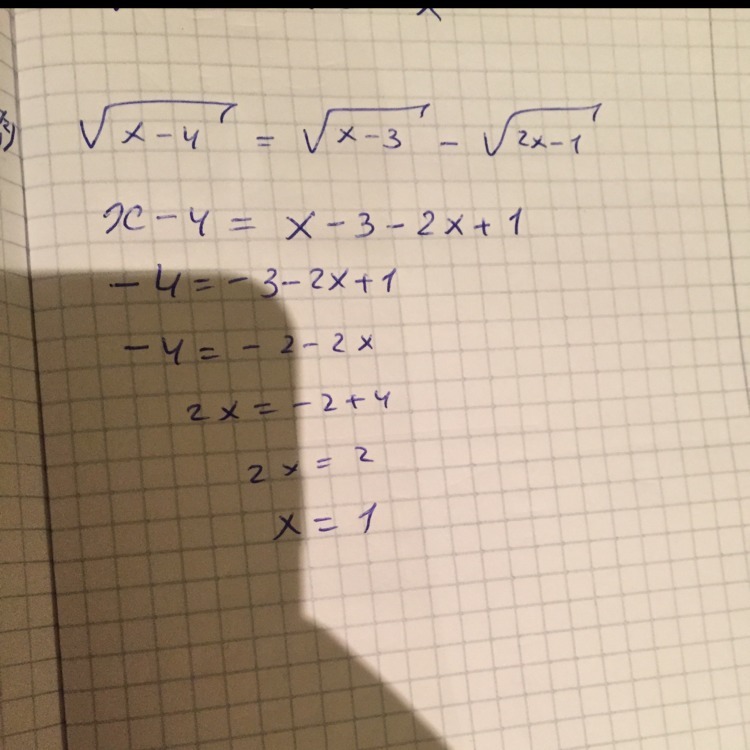 x
√x-4 = √x-3 - √2x-1
x-4 = x-3-2x+1
-4=-3-2x+1
-4=-2-2x
2x=-2+4
2x=2
x=1